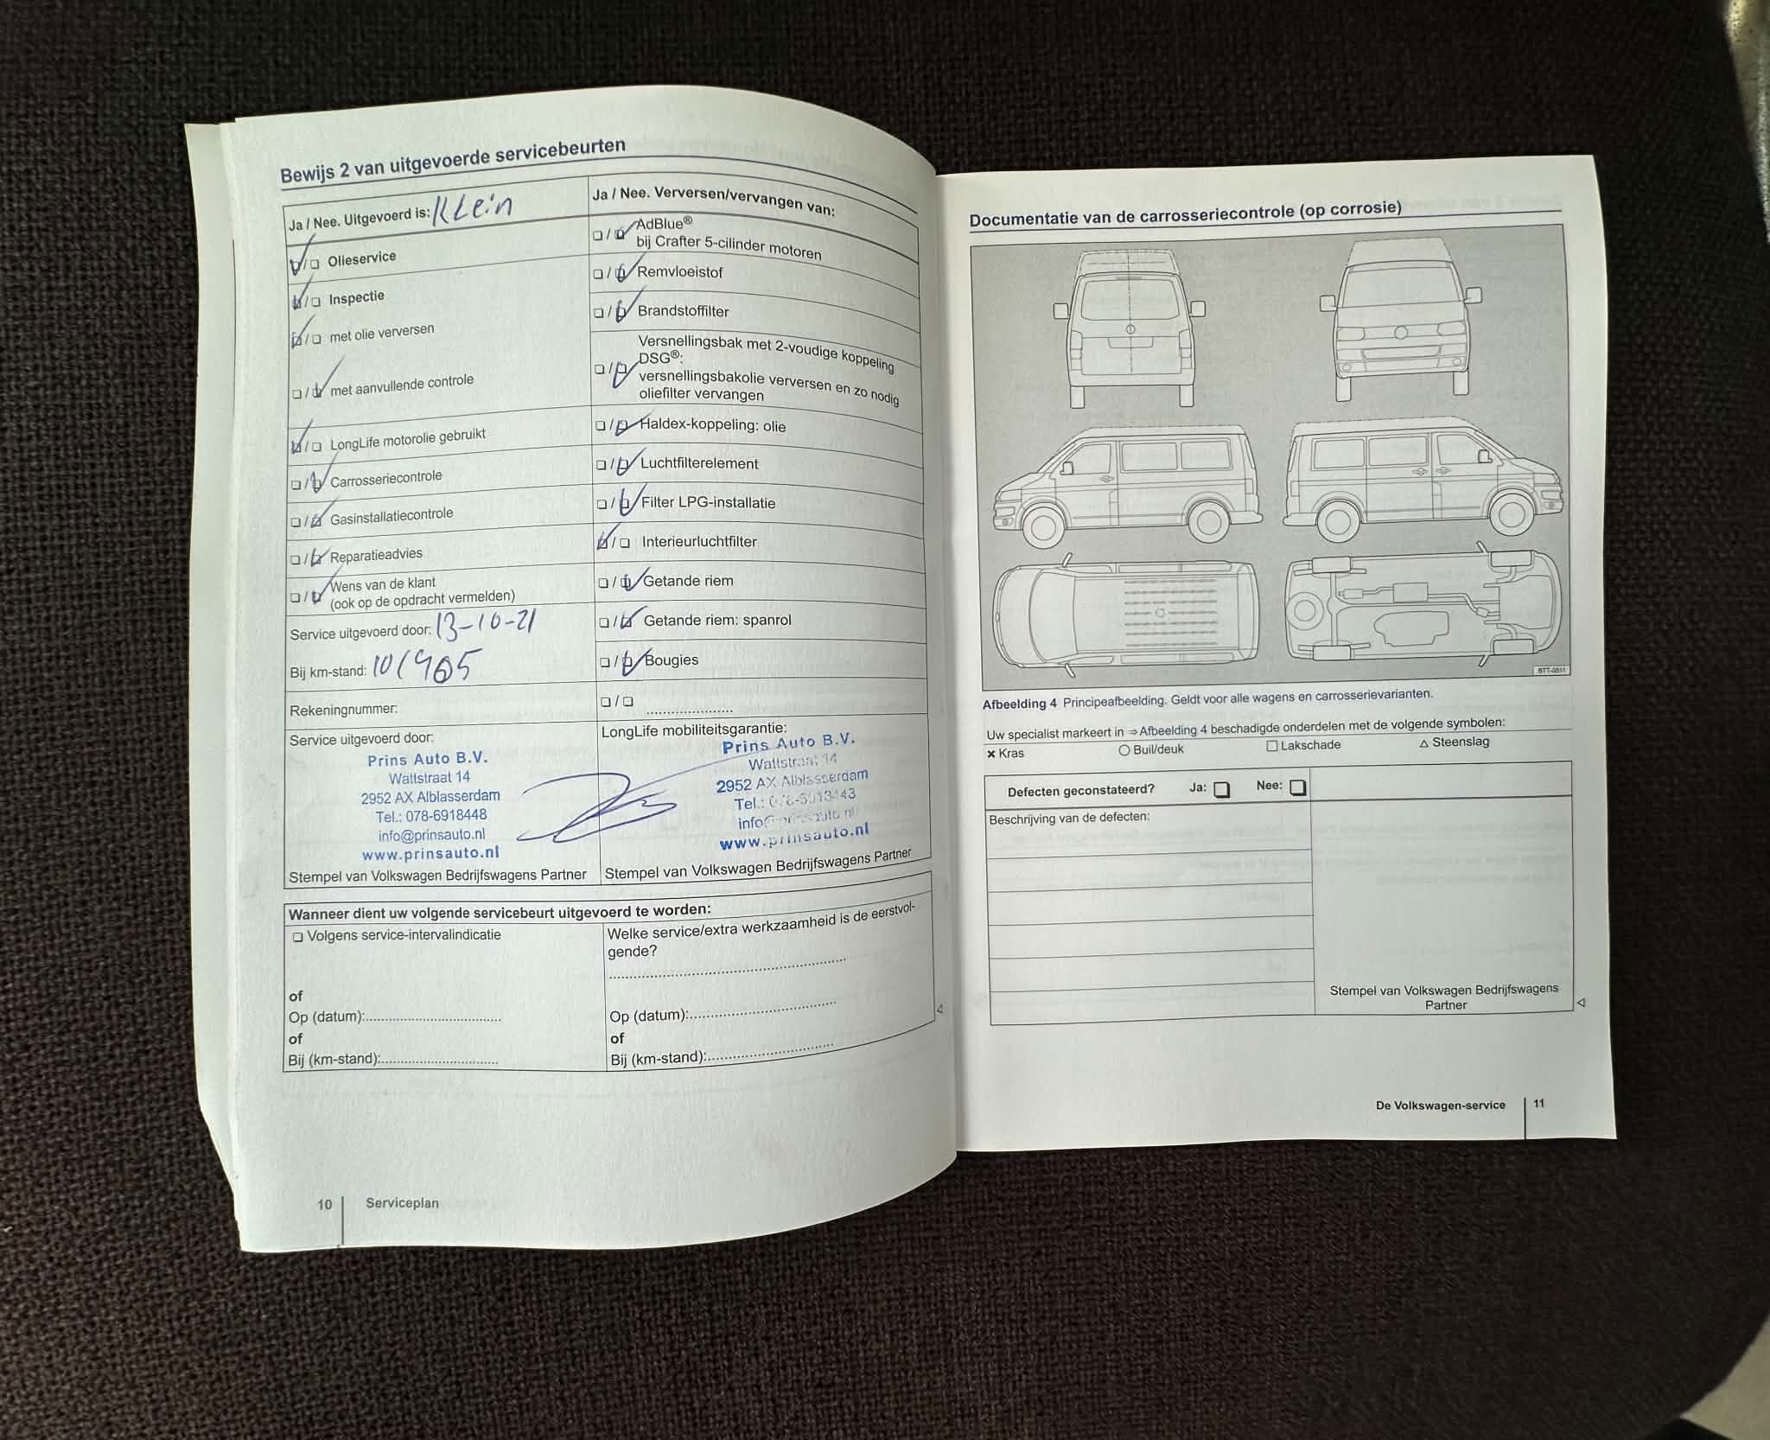 Bewijs 2 van uitgevoerde servicebeurten
Ja / Nee. Uitgevoerd is: Klein
☑/☐ Olieservice
☑/☐ Inspectie
☑/☐ met olie verversen
☐/☑ met aanvullende controle
☑/☐ LongLife motorolie gebruikt
☐/☑ Carrosseriecontrole
☐/☑ Gasinstallatiecontrole
☐/☑ Reparatieadvies
☐/☑ Wens van de klant
(ook op de opdracht vermelden)
Service uitgevoerd door: 13-10-21
Bij km-stand:
Rekeningnummer:
Service uitgevoerd door:
Prins Auto B.V.
Wattstraat 14
2952 AX Alblasserdam
Tel.: 078-6918448
info@prinsauto.nl
www.prinsauto.nl
Stempel van Volkswagen Bedrijfswagens Partner
Ja / Nee. Verversen/vervangen van:
☐/☑ AdBlue®
bij Crafter 5-cilinder motoren
☐/☑ Remvloeistof
☐/☑ Brandstoffilter
☐/☑ Versnellingsbak met 2-voudige koppeling
DSG®:
versnellingsbakolie verversen en zo nodig
oliefilter vervangen
☐/☑ Haldex-koppeling: olie
☐/☑ Luchtfilterelement
☐/☑ Filter LPG-installatie
☑/☐ Interieurluchtfilter
☐/☑ Getande riem
☐/☑ Getande riem: spanrol
☐/☑ Bougies
☐/☐ .....................
LongLife mobiliteitsgarantie:
Prins Auto B.V.
Wattstraat 14
2952 AX Alblasserdam
Tel.:
www.prinsauto.nl
Stempel van Volkswagen Bedrijfswagens Partner
Wanneer dient uw volgende servicebeurt uitgevoerd te worden:
☐ Volgens service-intervalindicatie
of
Op (datum):..................................
of
Bij (km-stand):.............................
Welke service/extra werkzaamheid is de eerstvol-
gende?
............................................................
Op (datum):.....................................
of
Bij (km-stand):................................
10 | Serviceplan
Documentatie van de carrosseriecontrole (op corrosie)
BTT-0511
Afbeelding 4 Principeafbeelding. Geldt voor alle wagens en carrosserievarianten.
Uw specialist markeert in ⇒ Afbeelding 4 beschadigde onderdelen met de volgende symbolen:
× Kras ○ Buil/deuk ☐ Lakschade △ Steenslag
Defecten geconstateerd? Ja: ☐ Nee: ☐
Beschrijving van de defecten:
Stempel van Volkswagen Bedrijfswagens
Partner
De Volkswagen-service | 11